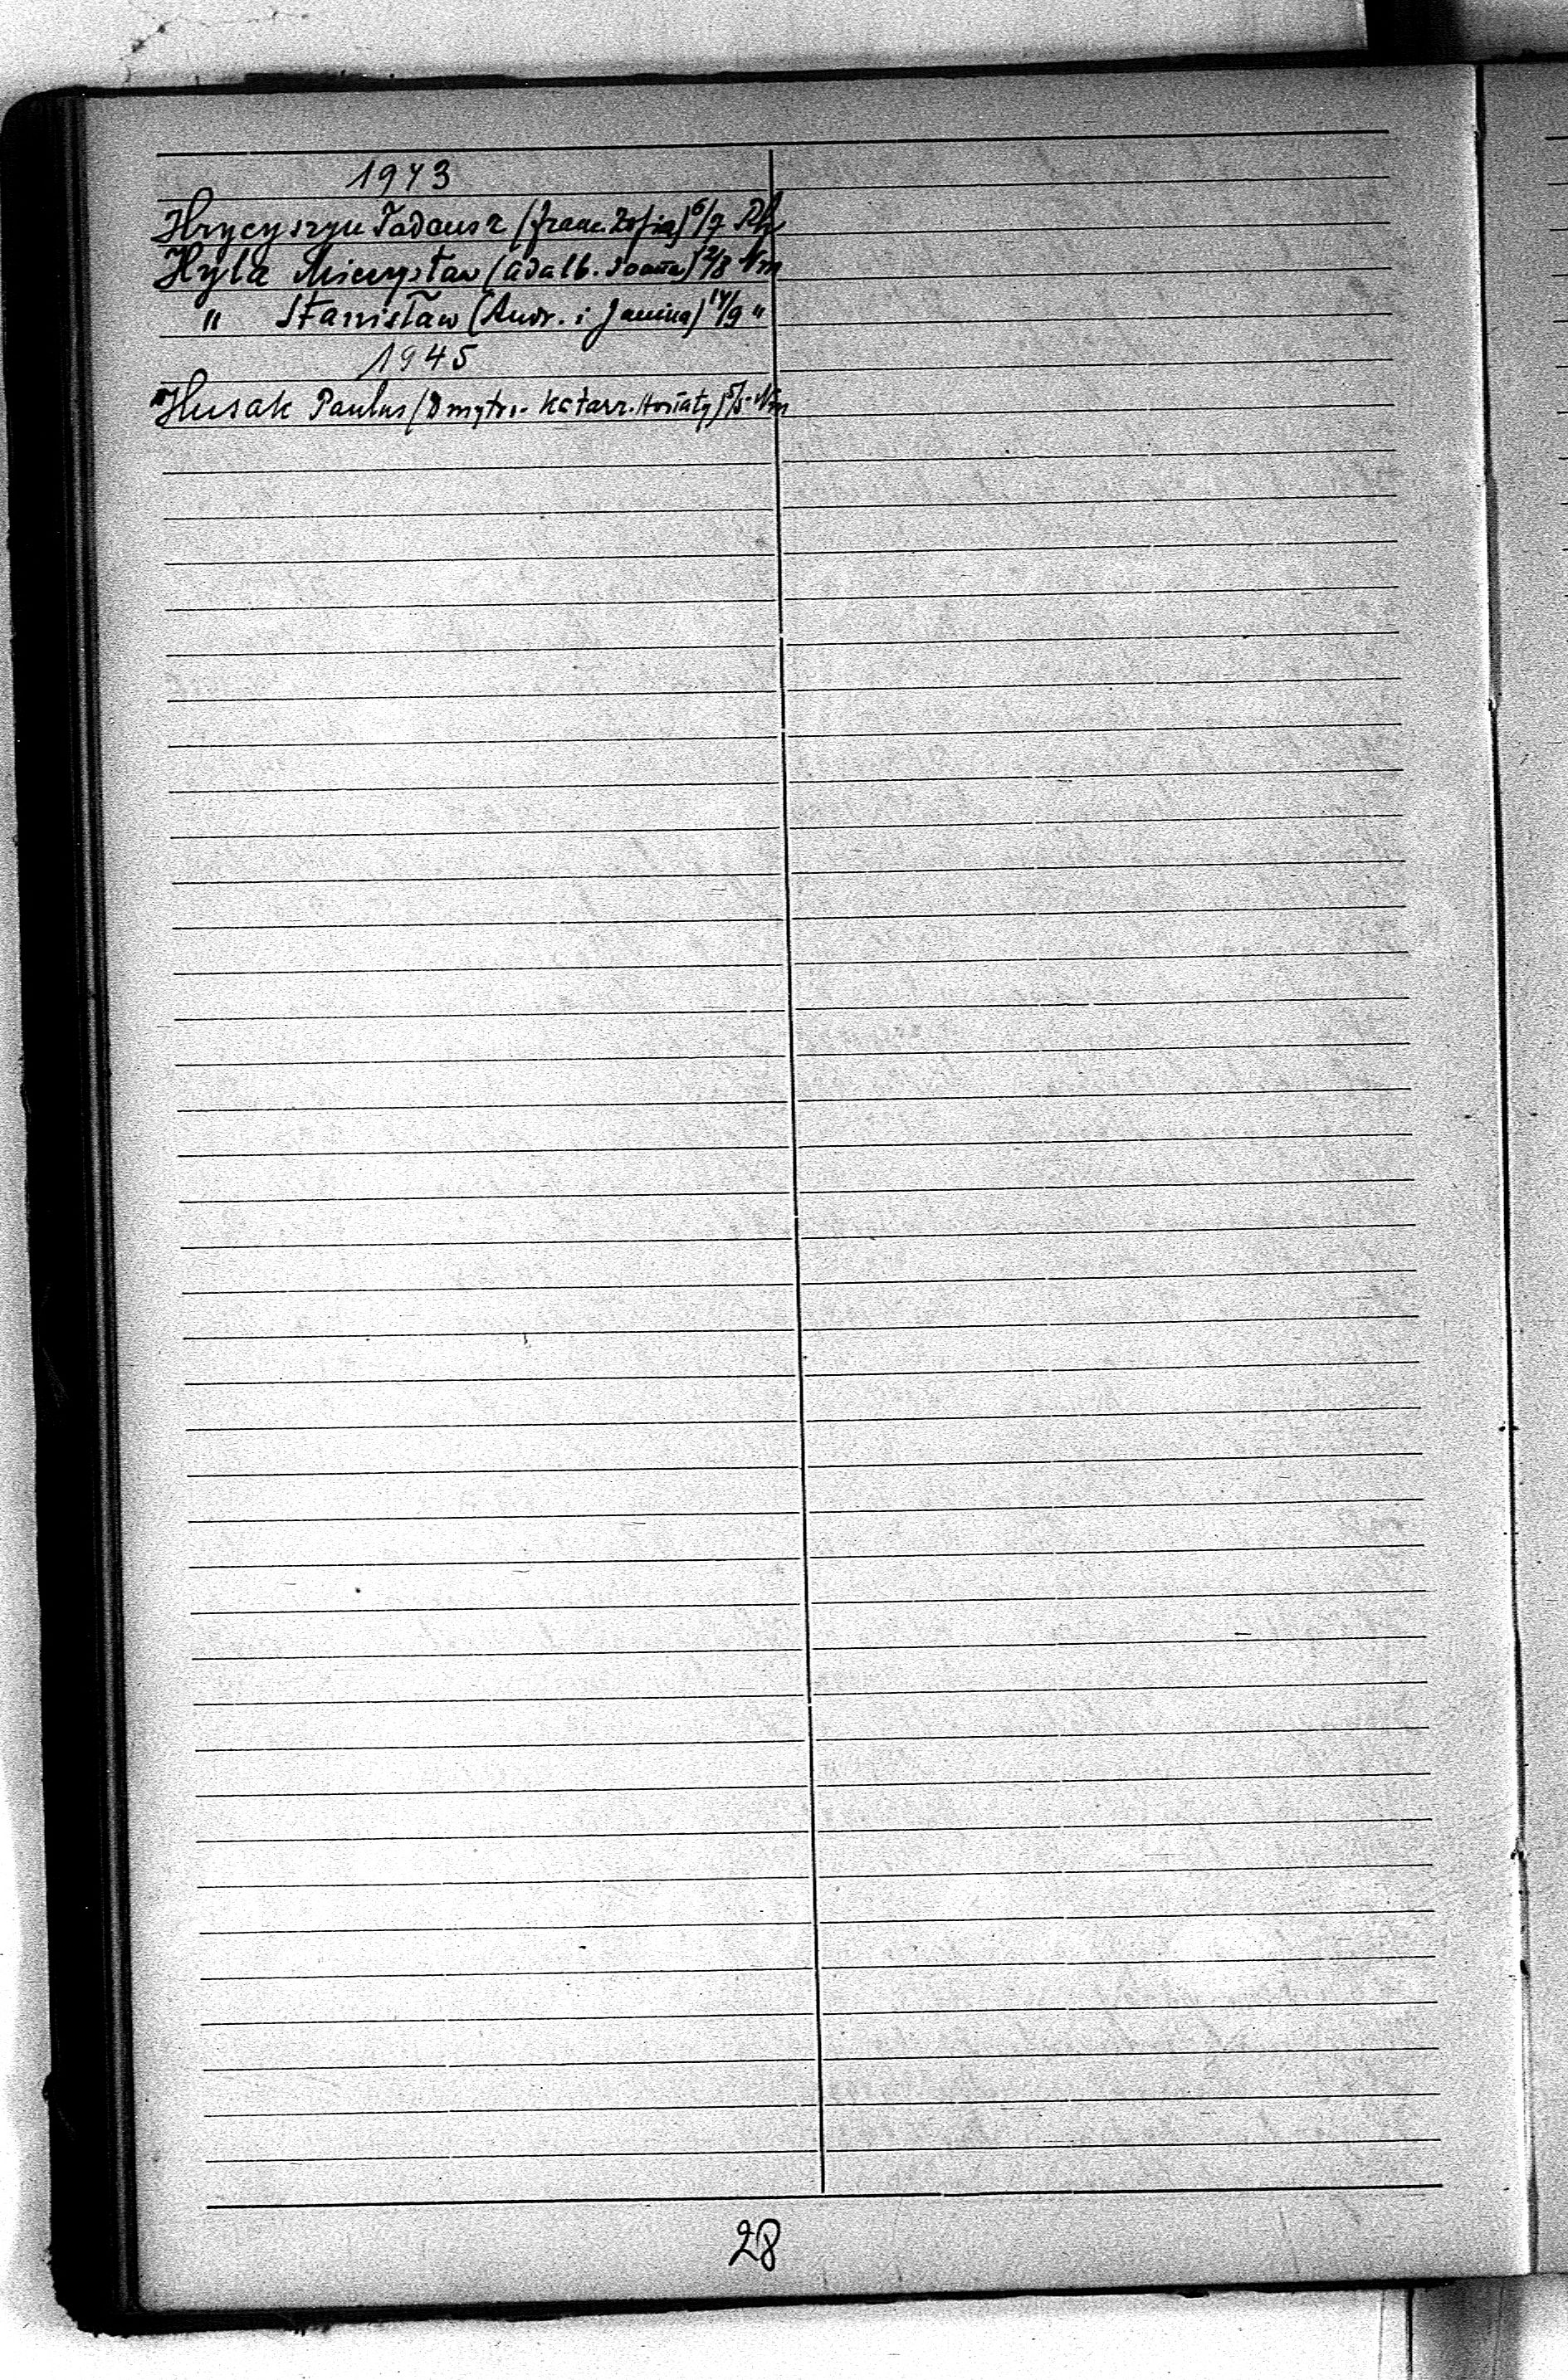 1943
Hrycyszyn Tadeusz (Franc. Zofia) 6/7 Rh
Hyla Mieczysław (Adalb. Joanna) 12/8 Nm
" Stanisław (Andr. i Janina) 14/9 "
1945
Husak Paulus (Dmytri. Katarz. Hostaty) 5/5 Nm
28